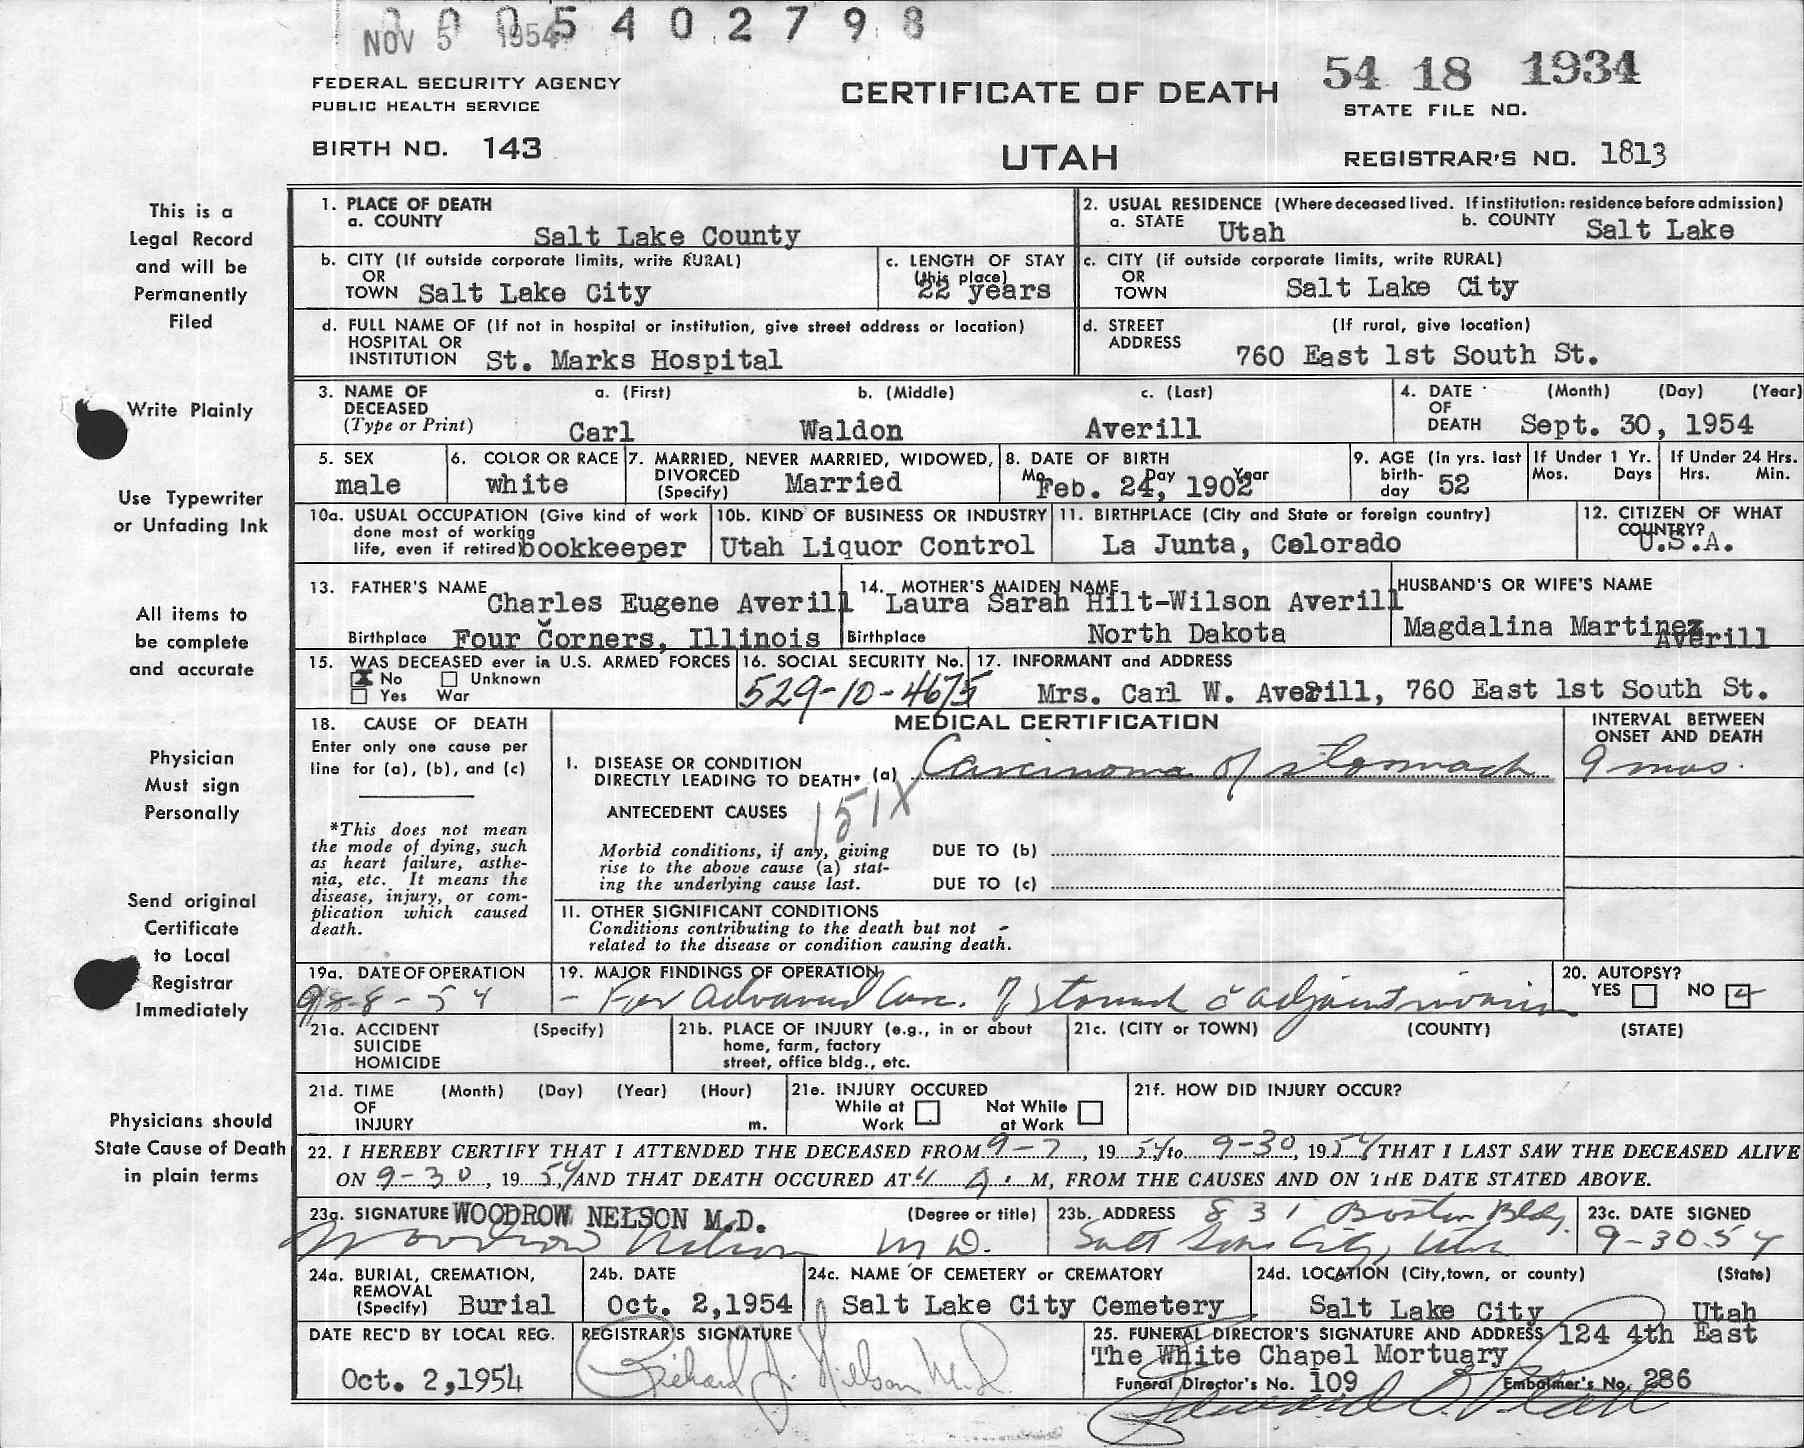 0005402798
NOV 5 1954
FEDERAL SECURITY AGENCY
PUBLIC HEALTH SERVICE
BIRTH NO. 143
CERTIFICATE OF DEATH
UTAH
54 18 1934
STATE FILE NO.
REGISTRAR'S NO. 1813
This is a
Legal Record
and will be
Permanently
Filed
Write Plainly
Use Typewriter
or Unfading Ink
All items to
be complete
and accurate
Physician
Must sign
Personally
Send original
Certificate
to Local
Registrar
Immediately
Physicians should
State Cause of Death
in plain terms
1. PLACE OF DEATH
a. COUNTY Salt Lake County
2. USUAL RESIDENCE (Where deceased lived. If institution: residence before admission)
a. STATE Utah b. COUNTY Salt Lake
b. CITY (If outside corporate limits, write RURAL)
OR
TOWN Salt Lake City
c. LENGTH OF STAY
(this place)
22 years
c. CITY (if outside corporate limits, write RURAL)
OR
TOWN Salt Lake City
d. FULL NAME OF (If not in hospital or institution, give street address or location)
HOSPITAL OR
INSTITUTION St. Marks Hospital
d. STREET (If rural, give location)
ADDRESS
760 East 1st South St.
3. NAME OF a. (First) b. (Middle) c. (Last)
DECEASED
(Type or Print) Carl Waldon Averill
4. DATE (Month) (Day) (Year)
OF
DEATH Sept. 30, 1954
5. SEX
male
6. COLOR OR RACE
white
7. MARRIED, NEVER MARRIED, WIDOWED,
DIVORCED
(Specify) Married
8. DATE OF BIRTH
Mo. Day Year
Feb. 24, 1902
9. AGE (In yrs. last
birth-
day 52
If Under 1 Yr.
Mos. Days
If Under 24 Hrs.
Hrs. Min.
10a. USUAL OCCUPATION (Give kind of work
done most of working
life, even if retired) bookkeeper
10b. KIND OF BUSINESS OR INDUSTRY
Utah Liquor Control
11. BIRTHPLACE (City and State or foreign country)
La Junta, Colorado
12. CITIZEN OF WHAT
COUNTRY?
U.S.A.
13. FATHER'S NAME Charles Eugene Averill
Birthplace Four Corners, Illinois
14. MOTHER'S MAIDEN NAME
Laura Sarah Hilt-Wilson Averill
Birthplace North Dakota
HUSBAND'S OR WIFE'S NAME
Magdalina Martinez
Averill
15. WAS DECEASED ever in U.S. ARMED FORCES
X No Unknown
Yes War
16. SOCIAL SECURITY No.
529-10-4675
17. INFORMANT and ADDRESS
Mrs. Carl W. Averill, 760 East 1st South St.
18. CAUSE OF DEATH
Enter only one cause per
line for (a), (b), and (c)
*This does not mean
the mode of dying, such
as heart failure, asthe-
nia, etc. It means the
disease, injury, or com-
plication which caused
death.
MEDICAL CERTIFICATION
INTERVAL BETWEEN
ONSET AND DEATH
I. DISEASE OR CONDITION
DIRECTLY LEADING TO DEATH* (a) Carcinoma of stomach 9 mos.
ANTECEDENT CAUSES 151X
Morbid conditions, if any, giving
rise to the above cause (a) stat-
ing the underlying cause last.
DUE TO (b)
DUE TO (c)
II. OTHER SIGNIFICANT CONDITIONS
Conditions contributing to the death but not
related to the disease or condition causing death.
19a. DATE OF OPERATION
8-8-54
19. MAJOR FINDINGS OF OPERATION
- For advanced Carc. of stomach c adjacent
20. AUTOPSY?
YES NO
21a. ACCIDENT (Specify)
SUICIDE
HOMICIDE
21b. PLACE OF INJURY (e.g., in or about
home, farm, factory
street, office bldg., etc.
21c. (CITY or TOWN) (COUNTY) (STATE)
21d. TIME (Month) (Day) (Year) (Hour)
OF
INJURY m.
21e. INJURY OCCURED
While at Not While
Work at Work
21f. HOW DID INJURY OCCUR?
22. I HEREBY CERTIFY THAT I ATTENDED THE DECEASED FROM 9-7, 1954 to 9-30, 1954 THAT I LAST SAW THE DECEASED ALIVE
ON 9-30, 1954, AND THAT DEATH OCCURED AT 4 A.M, FROM THE CAUSES AND ON THE DATE STATED ABOVE.
23a. SIGNATURE WOODROW NELSON M.D. (Degree or title)
Woodrow Nelson M.D.
23b. ADDRESS 831 Boston Bldg.
Salt Lake City, Utah
23c. DATE SIGNED
9-30-54
24a. BURIAL, CREMATION,
REMOVAL
(Specify) Burial
24b. DATE
Oct. 2,1954
24c. NAME OF CEMETERY or CREMATORY
Salt Lake City Cemetery
24d. LOCATION (City,town, or county) (State)
Salt Lake City Utah
DATE REC'D BY LOCAL REG.
Oct. 2,1954
REGISTRAR'S SIGNATURE
Richard J. Nelson M.D.
25. FUNERAL DIRECTOR'S SIGNATURE AND ADDRESS 124 4th East
The White Chapel Mortuary
Funeral Director's No. 109 Embalmer's No. 286